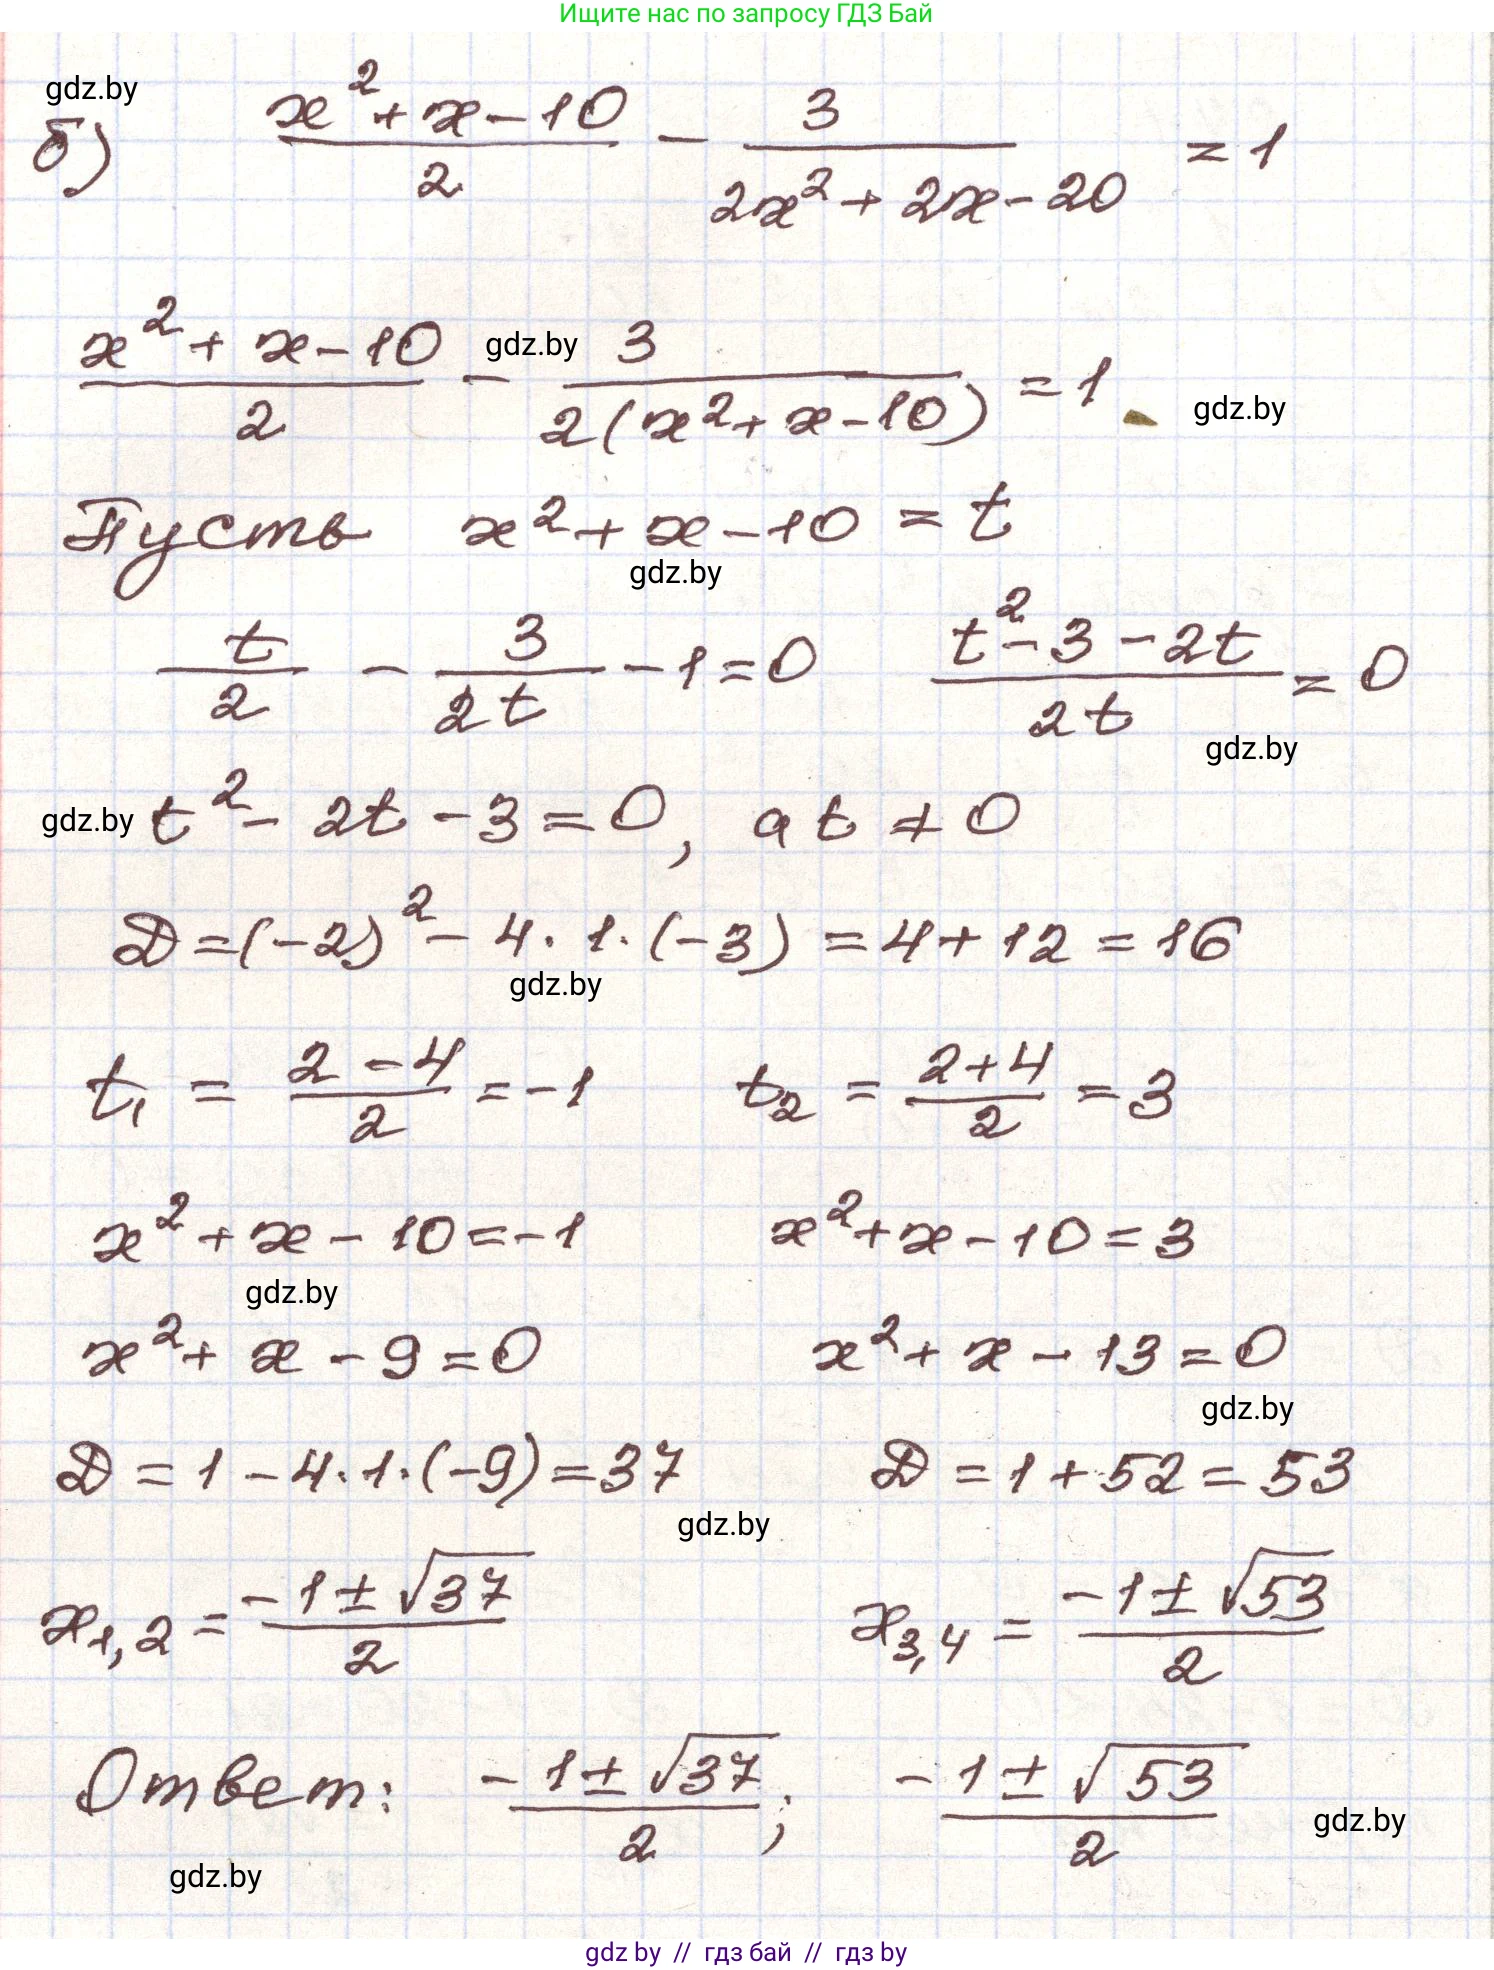 Ищите нас по запросу ГДЗ Бай
gdz.by
б) (x² + x - 10)/2 - 3/(2x² + 2x - 20) = 1
(x² + x - 10)/2 - 3/(2(x² + x - 10)) = 1
gdz.by
gdz.by
Пусть x² + x - 10 = t
gdz.by
t/2 - 3/(2t) - 1 = 0 (t² - 3 - 2t)/(2t) = 0
gdz.by
gdz.by
t² - 2t - 3 = 0, а t ≠ 0
D = (-2)² - 4 · 1 · (-3) = 4 + 12 = 16
gdz.by
t₁ = (2 - 4)/2 = -1 t₂ = (2 + 4)/2 = 3
x² + x - 10 = -1 x² + x - 10 = 3
gdz.by
x² + x - 9 = 0 x² + x - 13 = 0
gdz.by
D = 1 - 4 · 1 · (-9) = 37 D = 1 + 52 = 53
gdz.by
x₁,₂ = (-1 ± √37)/2 x₃,₄ = (-1 ± √53)/2
Ответ: (-1 ± √37)/2; (-1 ± √53)/2
gdz.by
gdz.by
gdz by // гдз бай // гдз by